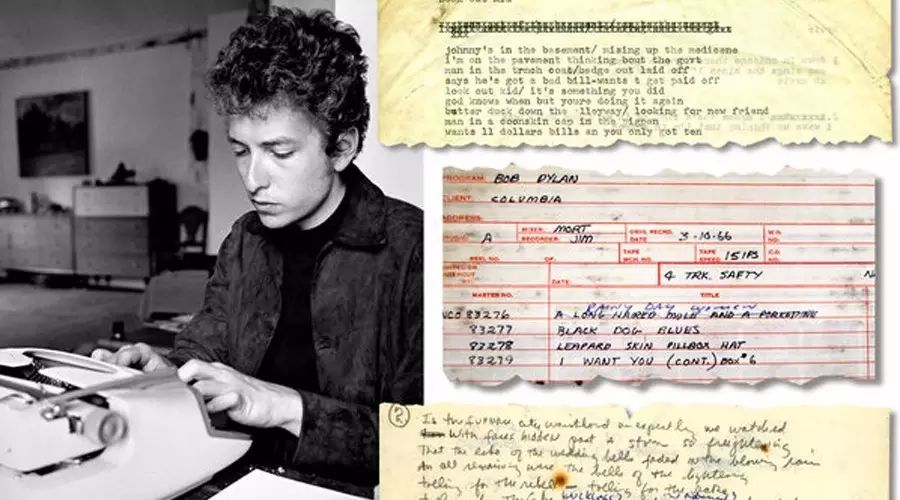 johnny's in the basement/ mixing up the medicene
i'm on the pavement thinking bout the govt
man in the trnch coat/badge out laid off
says he's got a bad bill-wants t get paid off
look out kid/ it's something you did
god knows when but youre doing it again
better duck down the lleyway/ looking for new friend
man in a coonskin cap in the pigpen
wants ll dollars bills an you only got ten
PROGRAM: BOB DYLAN
CLIENT: COLUMBIA
ADDRESS:
A MIXER: MORT ORIG. RECRD. DATE 3-10-66 W.O. NO.
RECORDER: JIM
REEL NO. OF: TAPE MCH. NO. TAPE SPEED 15 IPS C.O. NO.
DATE: 4 TRK. SAFTY
MASTER NO. TITLE
RAINY DAY WOMEN
NCO 83276 A LONG HAIRED MULE AND A PORKEPINE
83277 BLACK DOG BLUES
83278 LEAPARD SKIN PILLBOX HAT
83279 I WANT YOU (CONT.) BOX #6
2
we watched
With faces hidden past a storm so frightening
That the echo of the wedding bells faded in the blowing rain
An all remaining were the bells of the lightening
tolling for the rebel — tolling for the